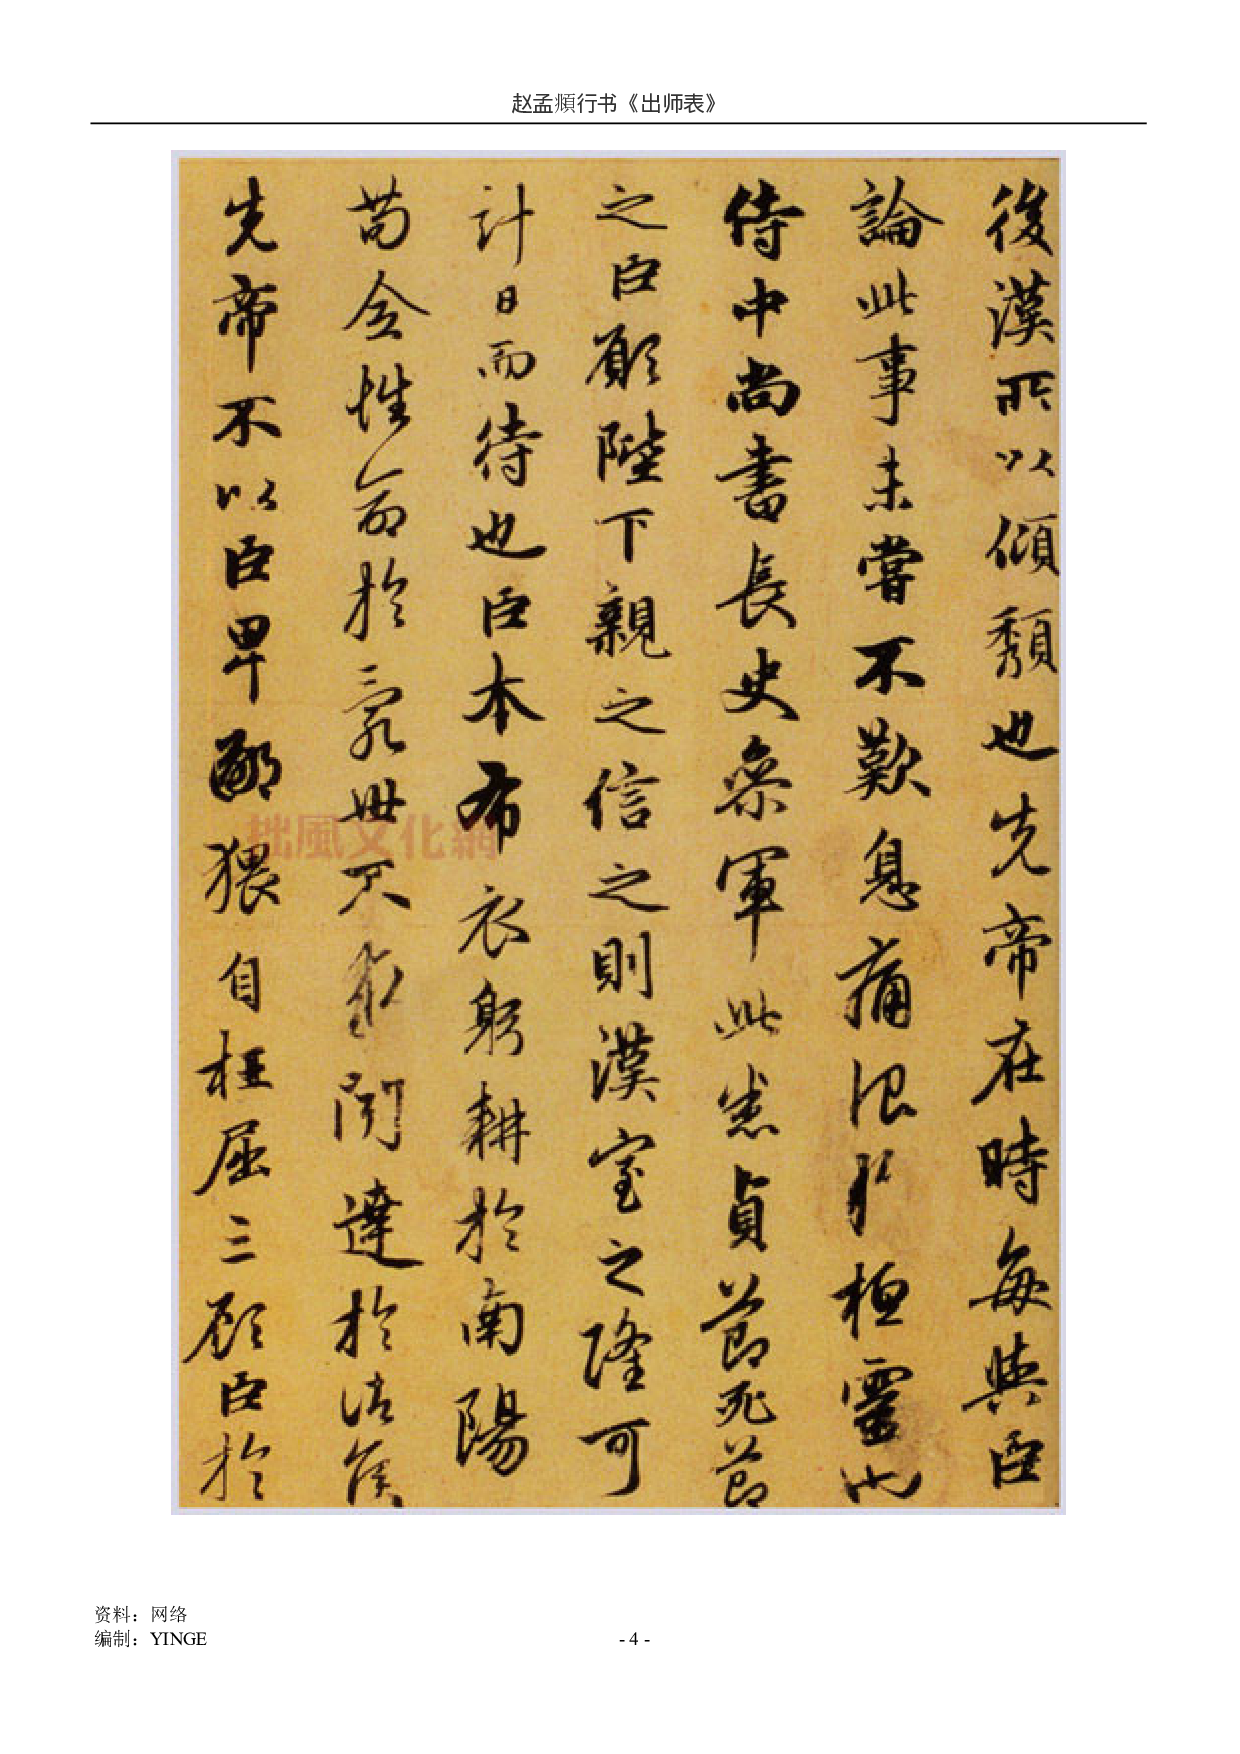 赵孟頫行书《出师表》
後漢所以傾頹也先帝在時每與臣
論此事未嘗不歎息痛恨於桓靈也
侍中尚書長史參軍此悉貞節死節
之臣願陛下親之信之則漢室之隆可
計日而待也臣本布衣躬耕於南陽
苟全性命於亂世不求聞達於諸侯
先帝不以臣卑鄙猥自枉屈三顧臣於
拙風文化網
资料：网络
编制：YINGE
- 4 -